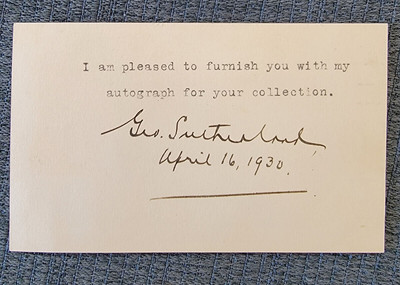 I am pleased to furnish you with my
autograph for your collection.
Geo. Sutherland
April 16, 1930.